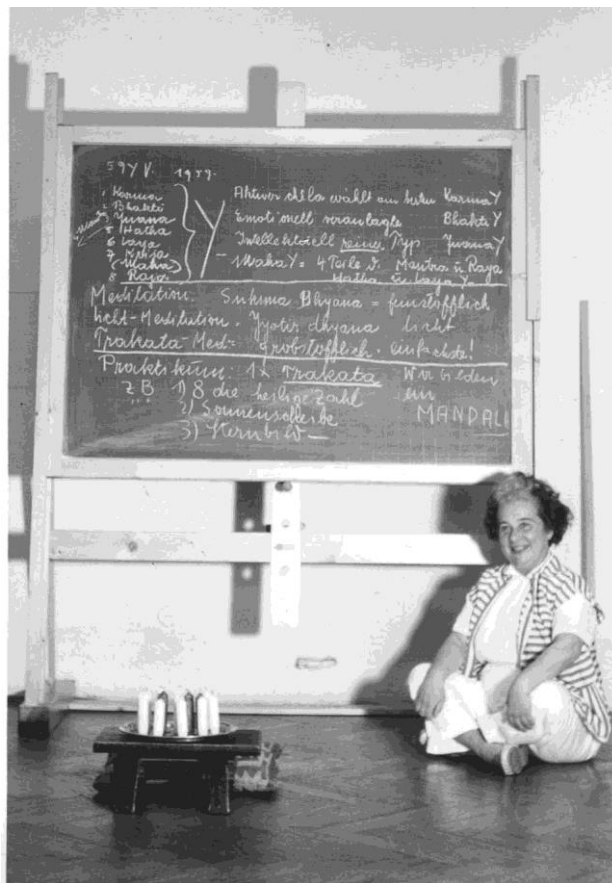 1959.
1 Karma
2 Bhakti
Jnana
5 Hatha
6 Laya
7 Krija
(Maha)
8 Raja
Y
Aktiver chela wählt am KarmaY
Emotinell veranlagte Bhakti Y
Intellektuell reiner Typ JnanaY
MahaY = 4 Teile d. Mantra ü Raya
Hatha ü Laya Y
Meditation: Sukma Dhyana = feinstofflich
licht-Meditation. Jyotir dhyana licht
Trakata-Med = grobstofflich. einfachste!
Praktikum: 1x Trakata Wir bilden
z B 1) 8 die heilige Zahl ein
2) Sonnenscheibe MANDALI
3) Sternbild —